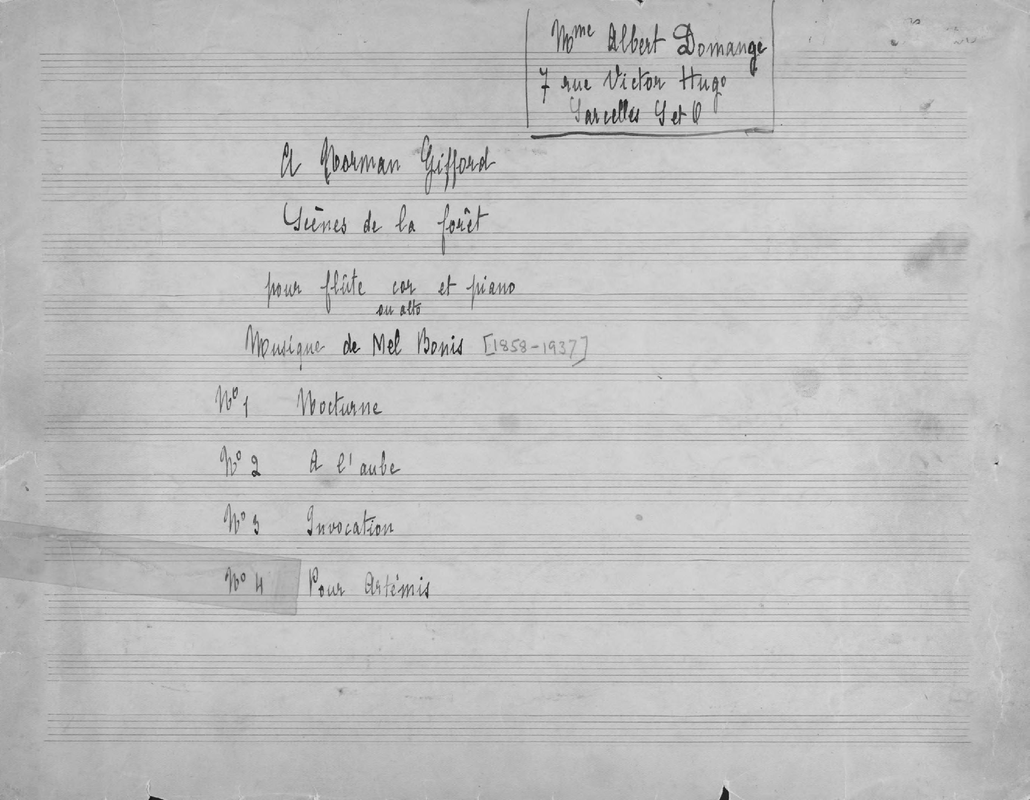 Mme Albert Domange
7 rue Victor Hugo
Sarcelles S et O
A Norman Gifford
Scènes de la forêt
pour flûte cor et piano
ou alto
Musique de Mel Bonis [1858-1937]
No 1 Nocturne
No 2 A l'aube
No 3 Invocation
No 4 Pour Artémis